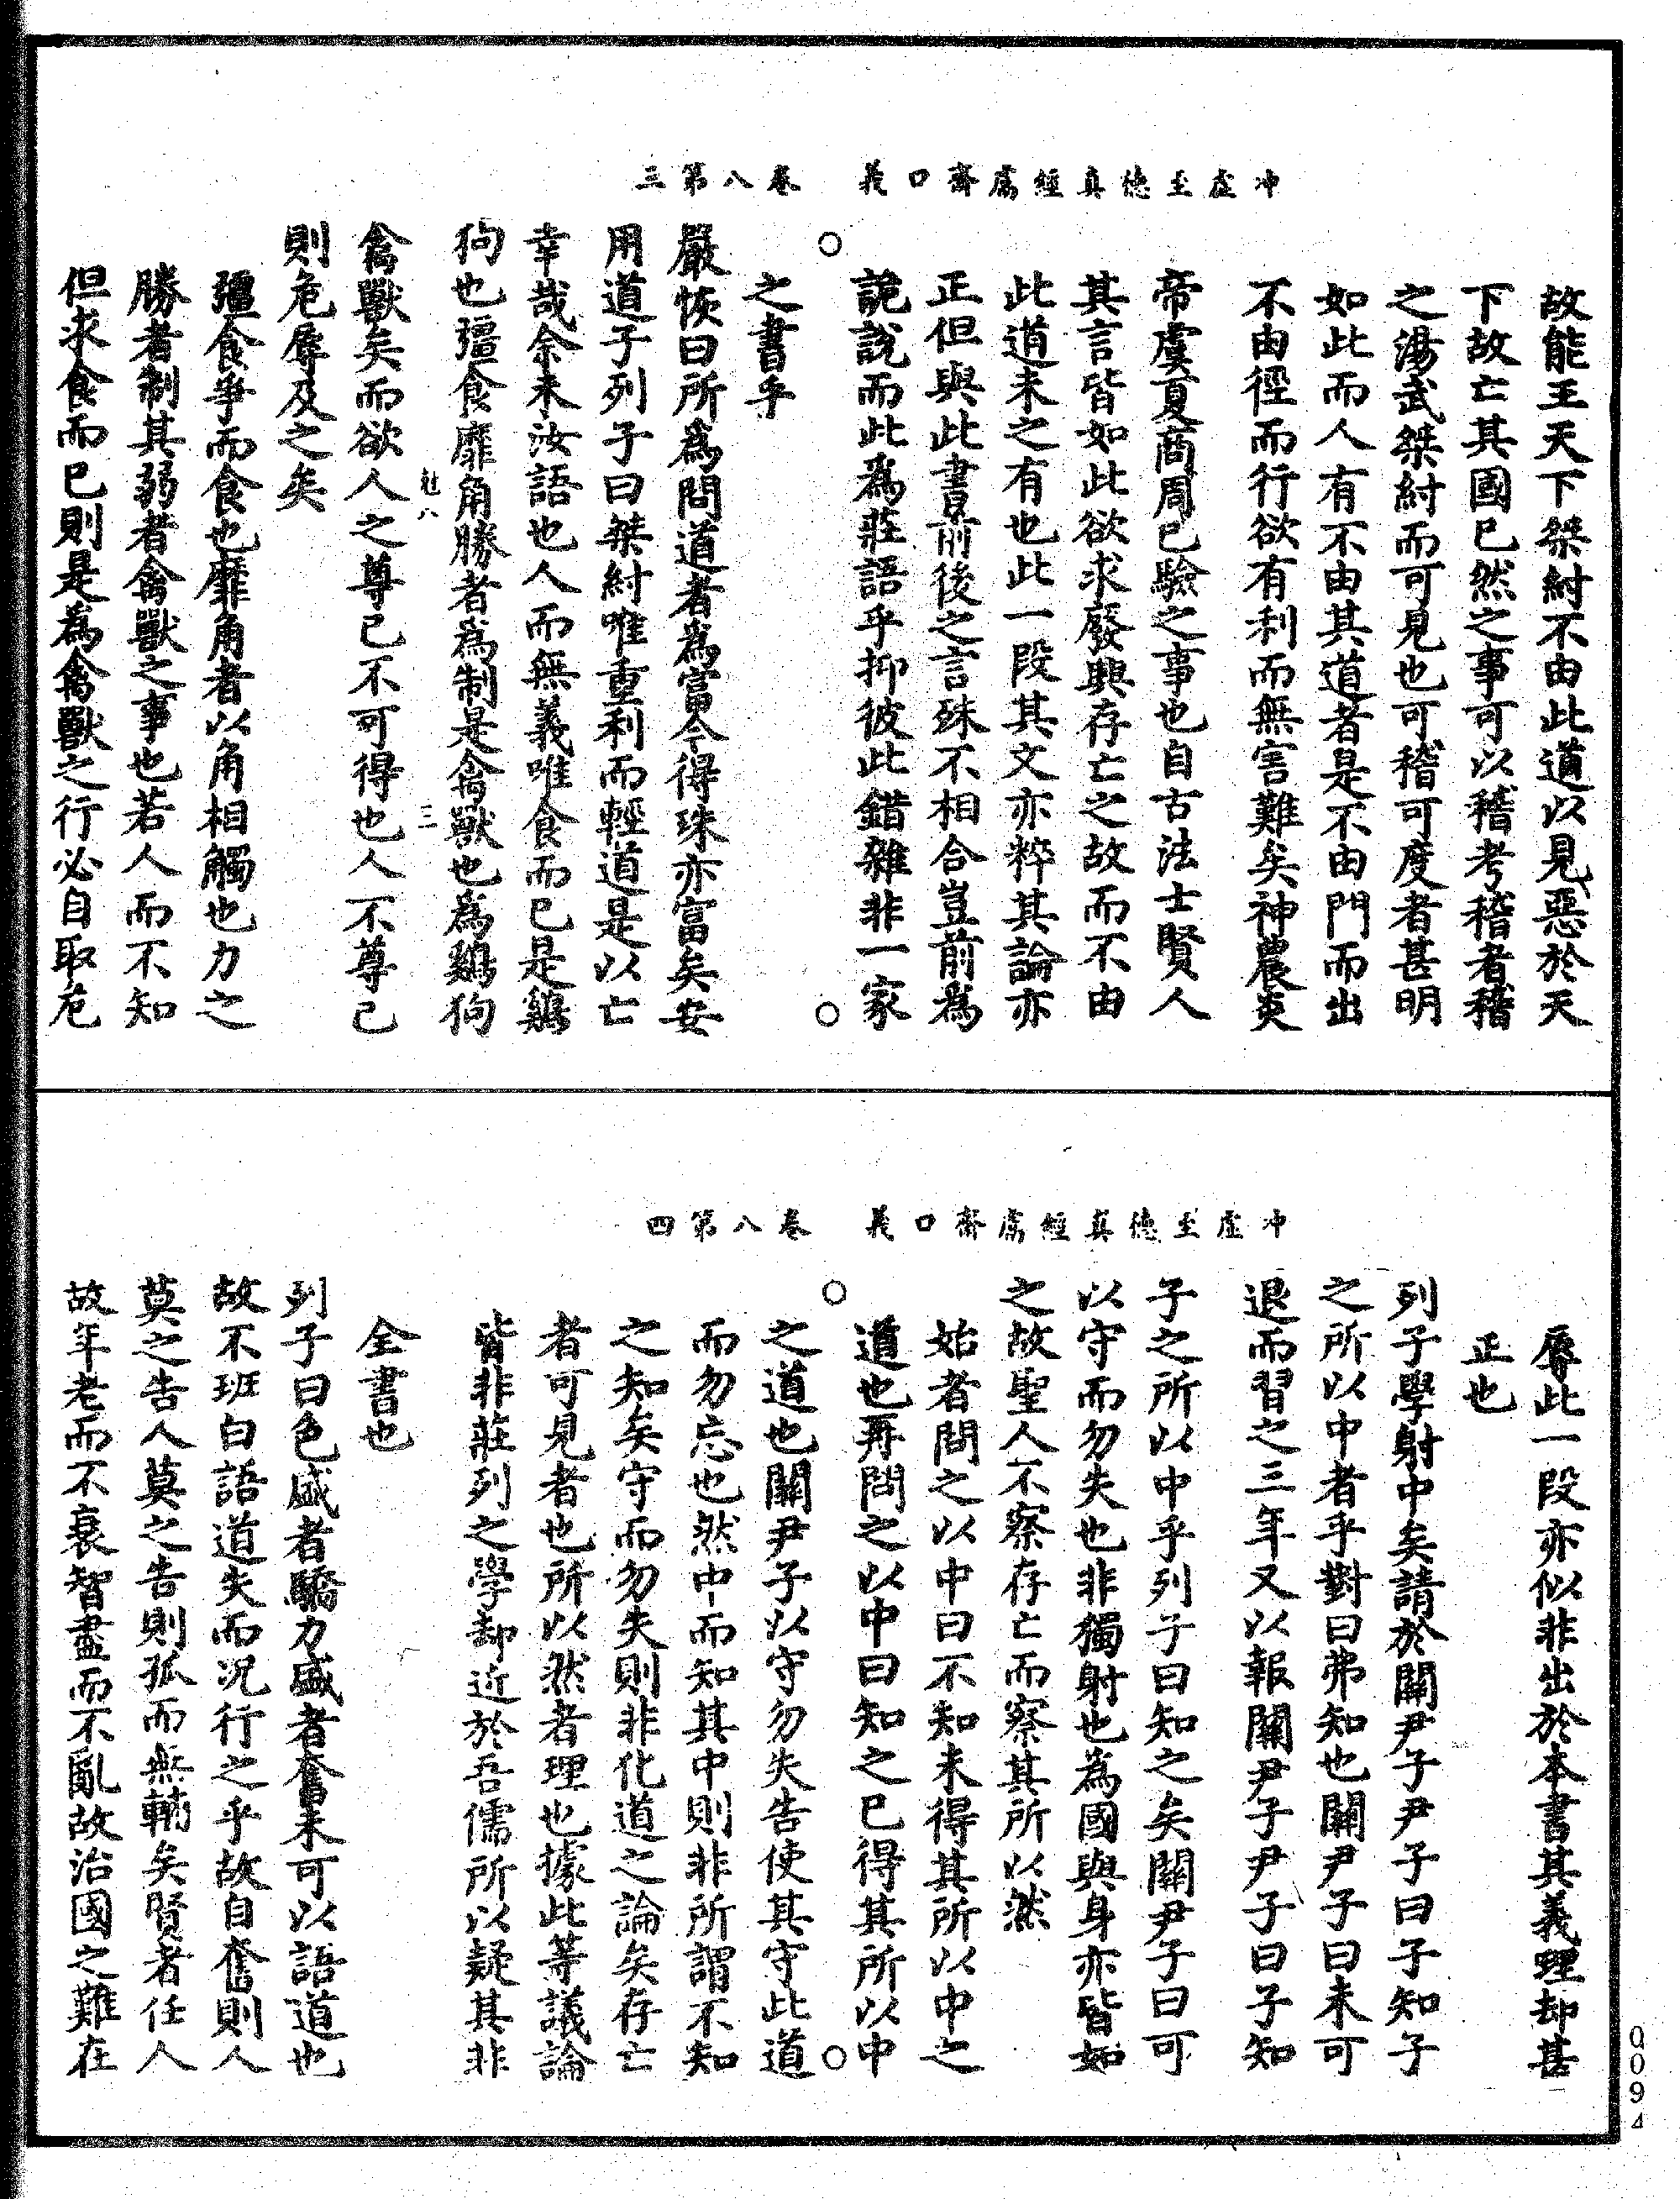 冲虛至德真經鬳齋口義　卷八第三
故能王天下桀紂不由此道以見惡於天
下故亡其國已然之事可以稽考稽者稽
之湯武桀紂而可見也可稽可度者甚明
如此而人有不由其道者是不由門而出
不由徑而行欲有利而無害難矣神農炎
帝虞夏商周已驗之事也自古法士賢人
其言皆如此欲求廢興存亡之故而不由
此道未之有也此一段其文亦粹其論亦
正但與此書前後之言殊不相合豈前為
詭說而此為莊語乎抑彼此錯雜非一家
之書乎
嚴恢曰所為問道者為富今得珠亦富矣安
用道子列子曰桀紂唯重利而輕道是以亡
幸哉余未汝語也人而無義唯食而已是鷄
狗也彊食靡角勝者為制是禽獸也為鷄狗
禽獸矣而欲人之尊己不可得也人不尊己
則危辱及之矣
彊食爭而食也靡角者以角相觸也力之
勝者制其弱者禽獸之事也若人而不知
但求食而已則是為禽獸之行必自取危
冲虛至德真經鬳齋口義　卷八第四
辱此一段亦似非出於本書其義理却甚
正也
列子學射中矣請於關尹子尹子曰子知子
之所以中者乎對曰弗知也關尹子曰未可
退而習之三年又以報關尹子尹子曰子知
子之所以中乎列子曰知之矣關尹子曰可
以守而勿失也非獨射也為國與身亦皆如
之故聖人不察存亡而察其所以然
始者問之以中曰不知未得其所以中之
道也再問之以中曰知之已得其所以中
之道也關尹子以守勿失告使其守此道
而勿忘也然中而知其中則非所謂不知
之知矣守而勿失則非化道之論矣存亡
者可見者也所以然者理也據此等議論
皆非莊列之學却近於吾儒所以疑其非
全書也
列子曰色盛者驕力盛者奮未可以語道也
故不班白語道失而况行之乎故自奮則人
莫之告人莫之告則孤而無輔矣賢者任人
故年老而不衰智盡而不亂故治國之難在
Q0094